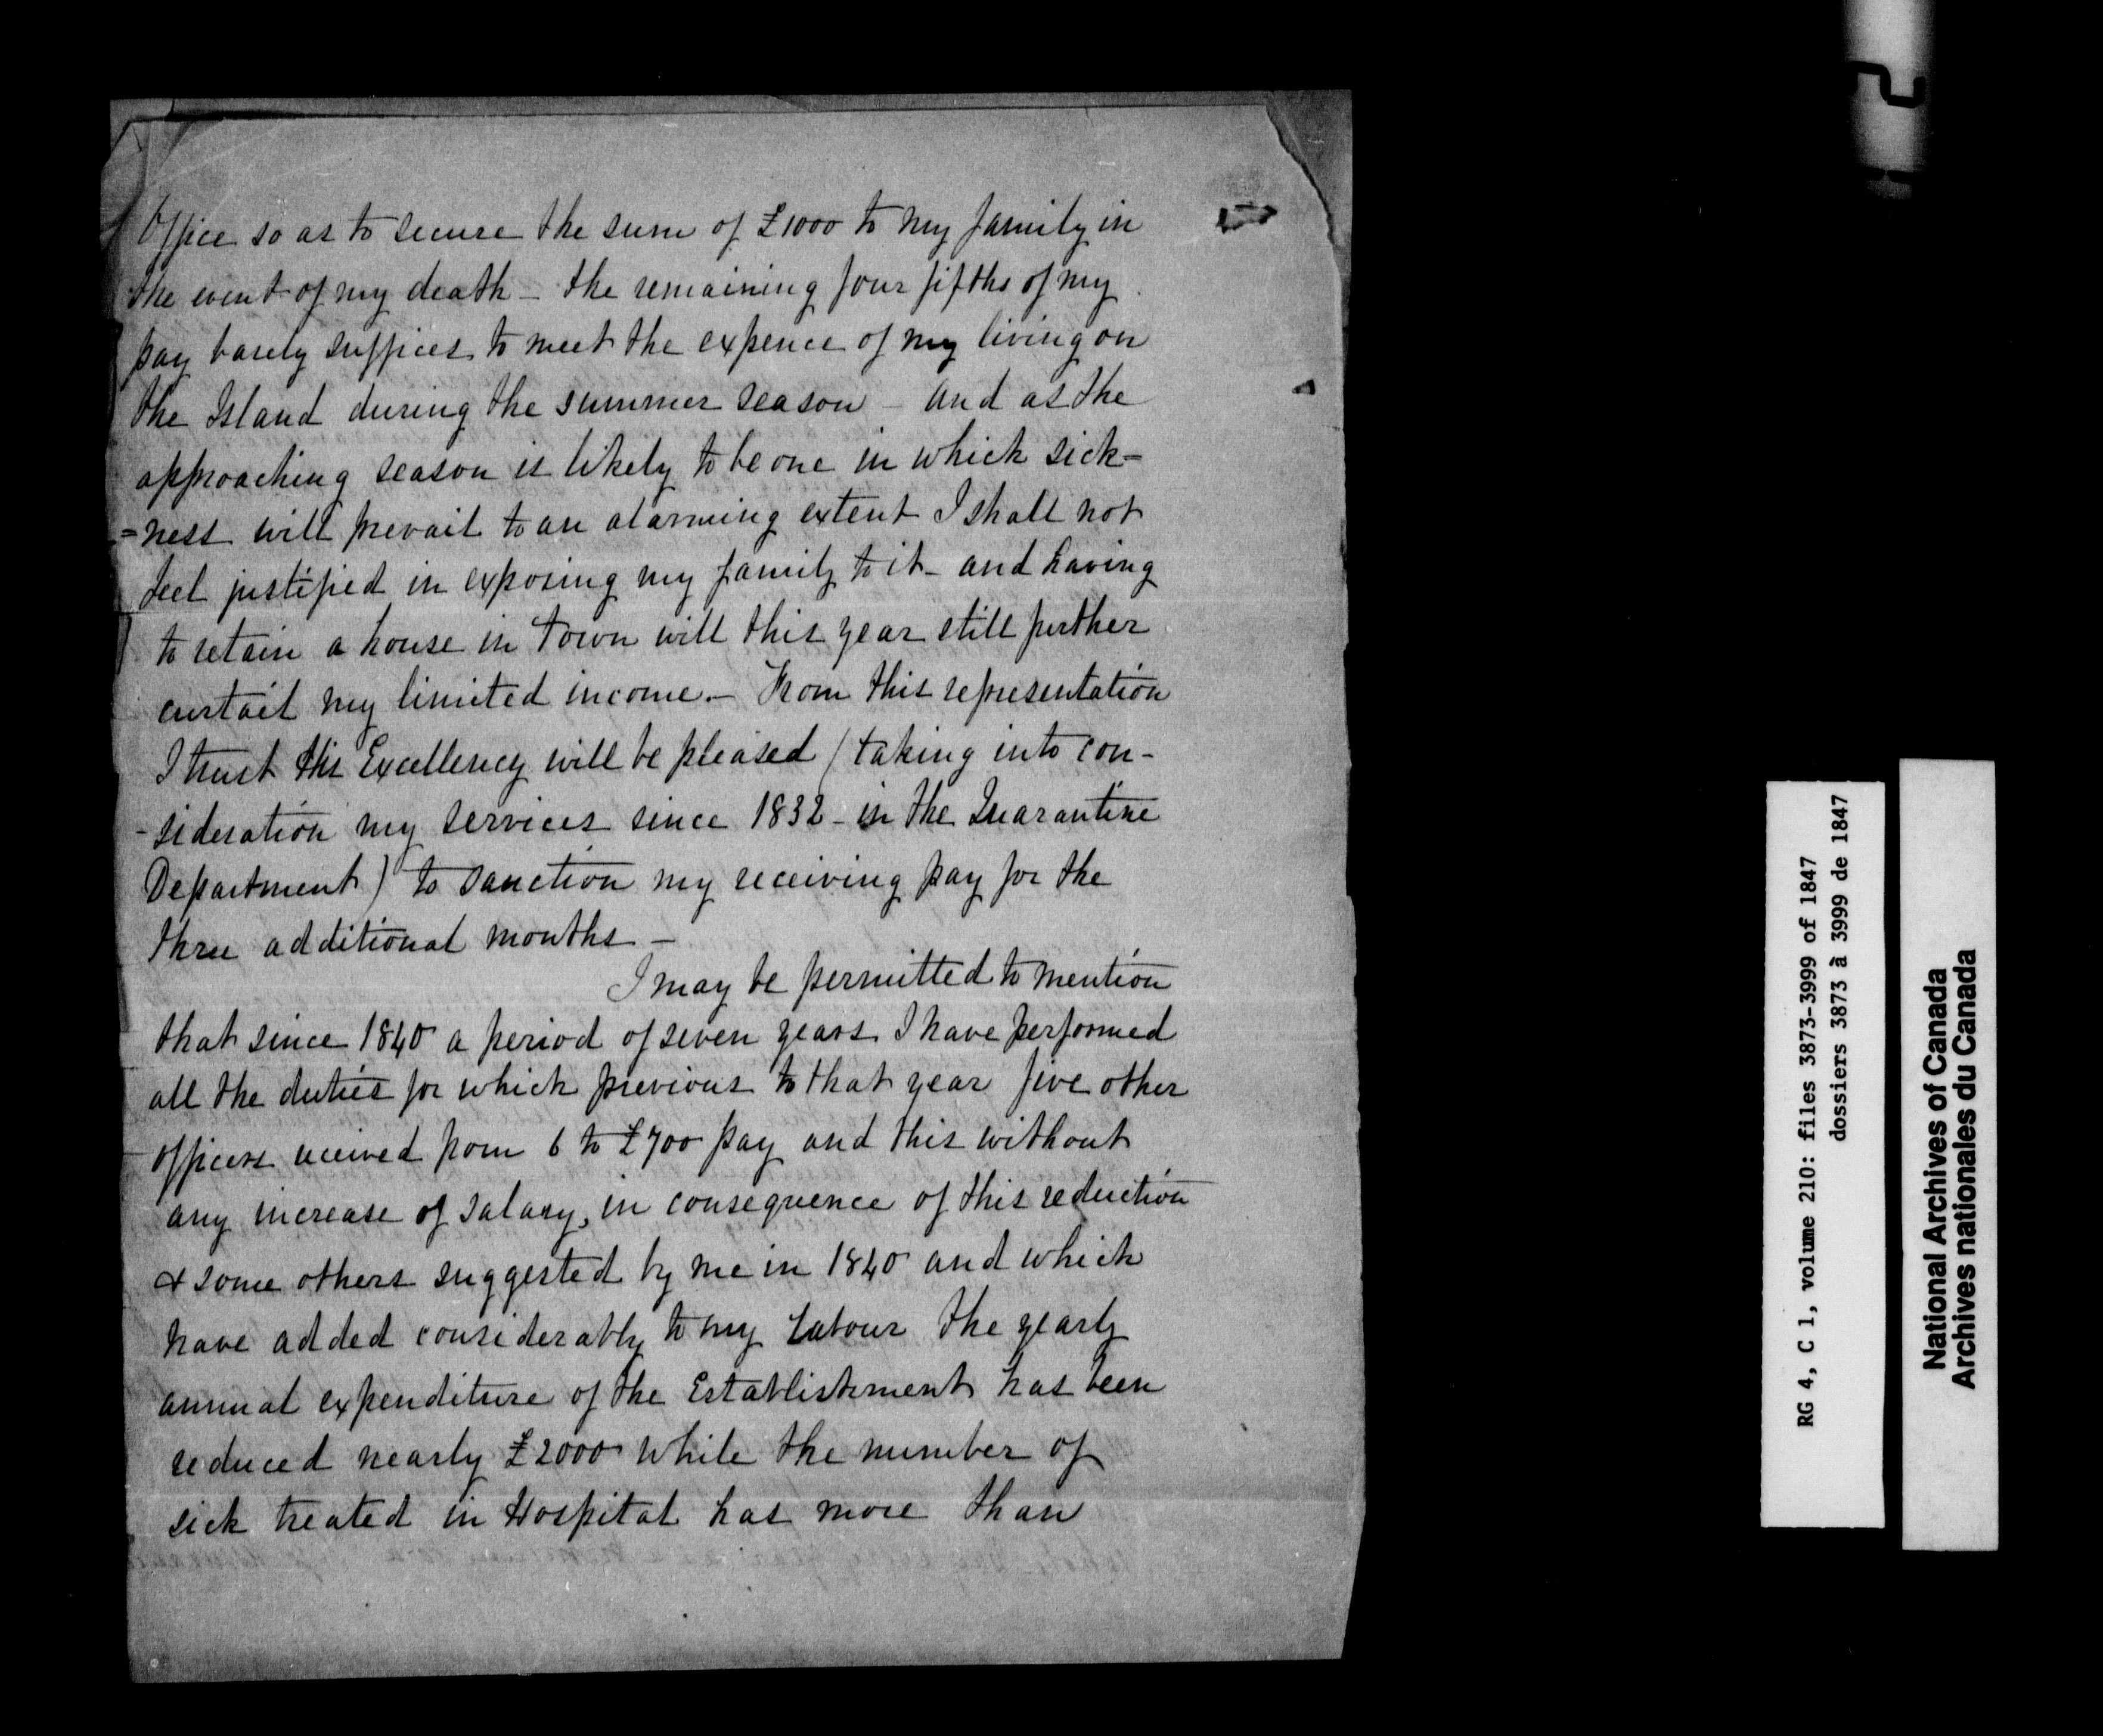 Office so as to secure the sum of £1000 to my family in
the event of my death – the remaining four fifths of my
pay barely suffices to meet the expence of my living on
the Island during the summer season – and as the
approaching season is likely to be one in which sick=
=ness will prevail to an alarming extent I shall not
feel justified in exposing my family to it – and having
to retain a house in Town will this year still further
curtail my limited income. – From this representation
I trust His Excellency will be pleased (taking into con-
-sideration my services since 1832 – in the Quarantine
Department) to sanction my receiving pay for the
three additional months –
I may be permitted to mention
that since 1840 a period of seven years I have performed
all the duties for which previous to that year five other
officers received from 6 to £700 pay and this without
any increase of salary, in consequence of this reduction
& some others suggested by me in 1840 and which
have added considerably to my labour the yearly
annual expenditure of the Establishment has been
reduced nearly £2000 while the number of
sick treated in Hospital has more than
RG 4, C 1, volume 210: files 3873-3999 of 1847
dossiers 3873 à 3999 de 1847
National Archives of Canada
Archives nationales du Canada